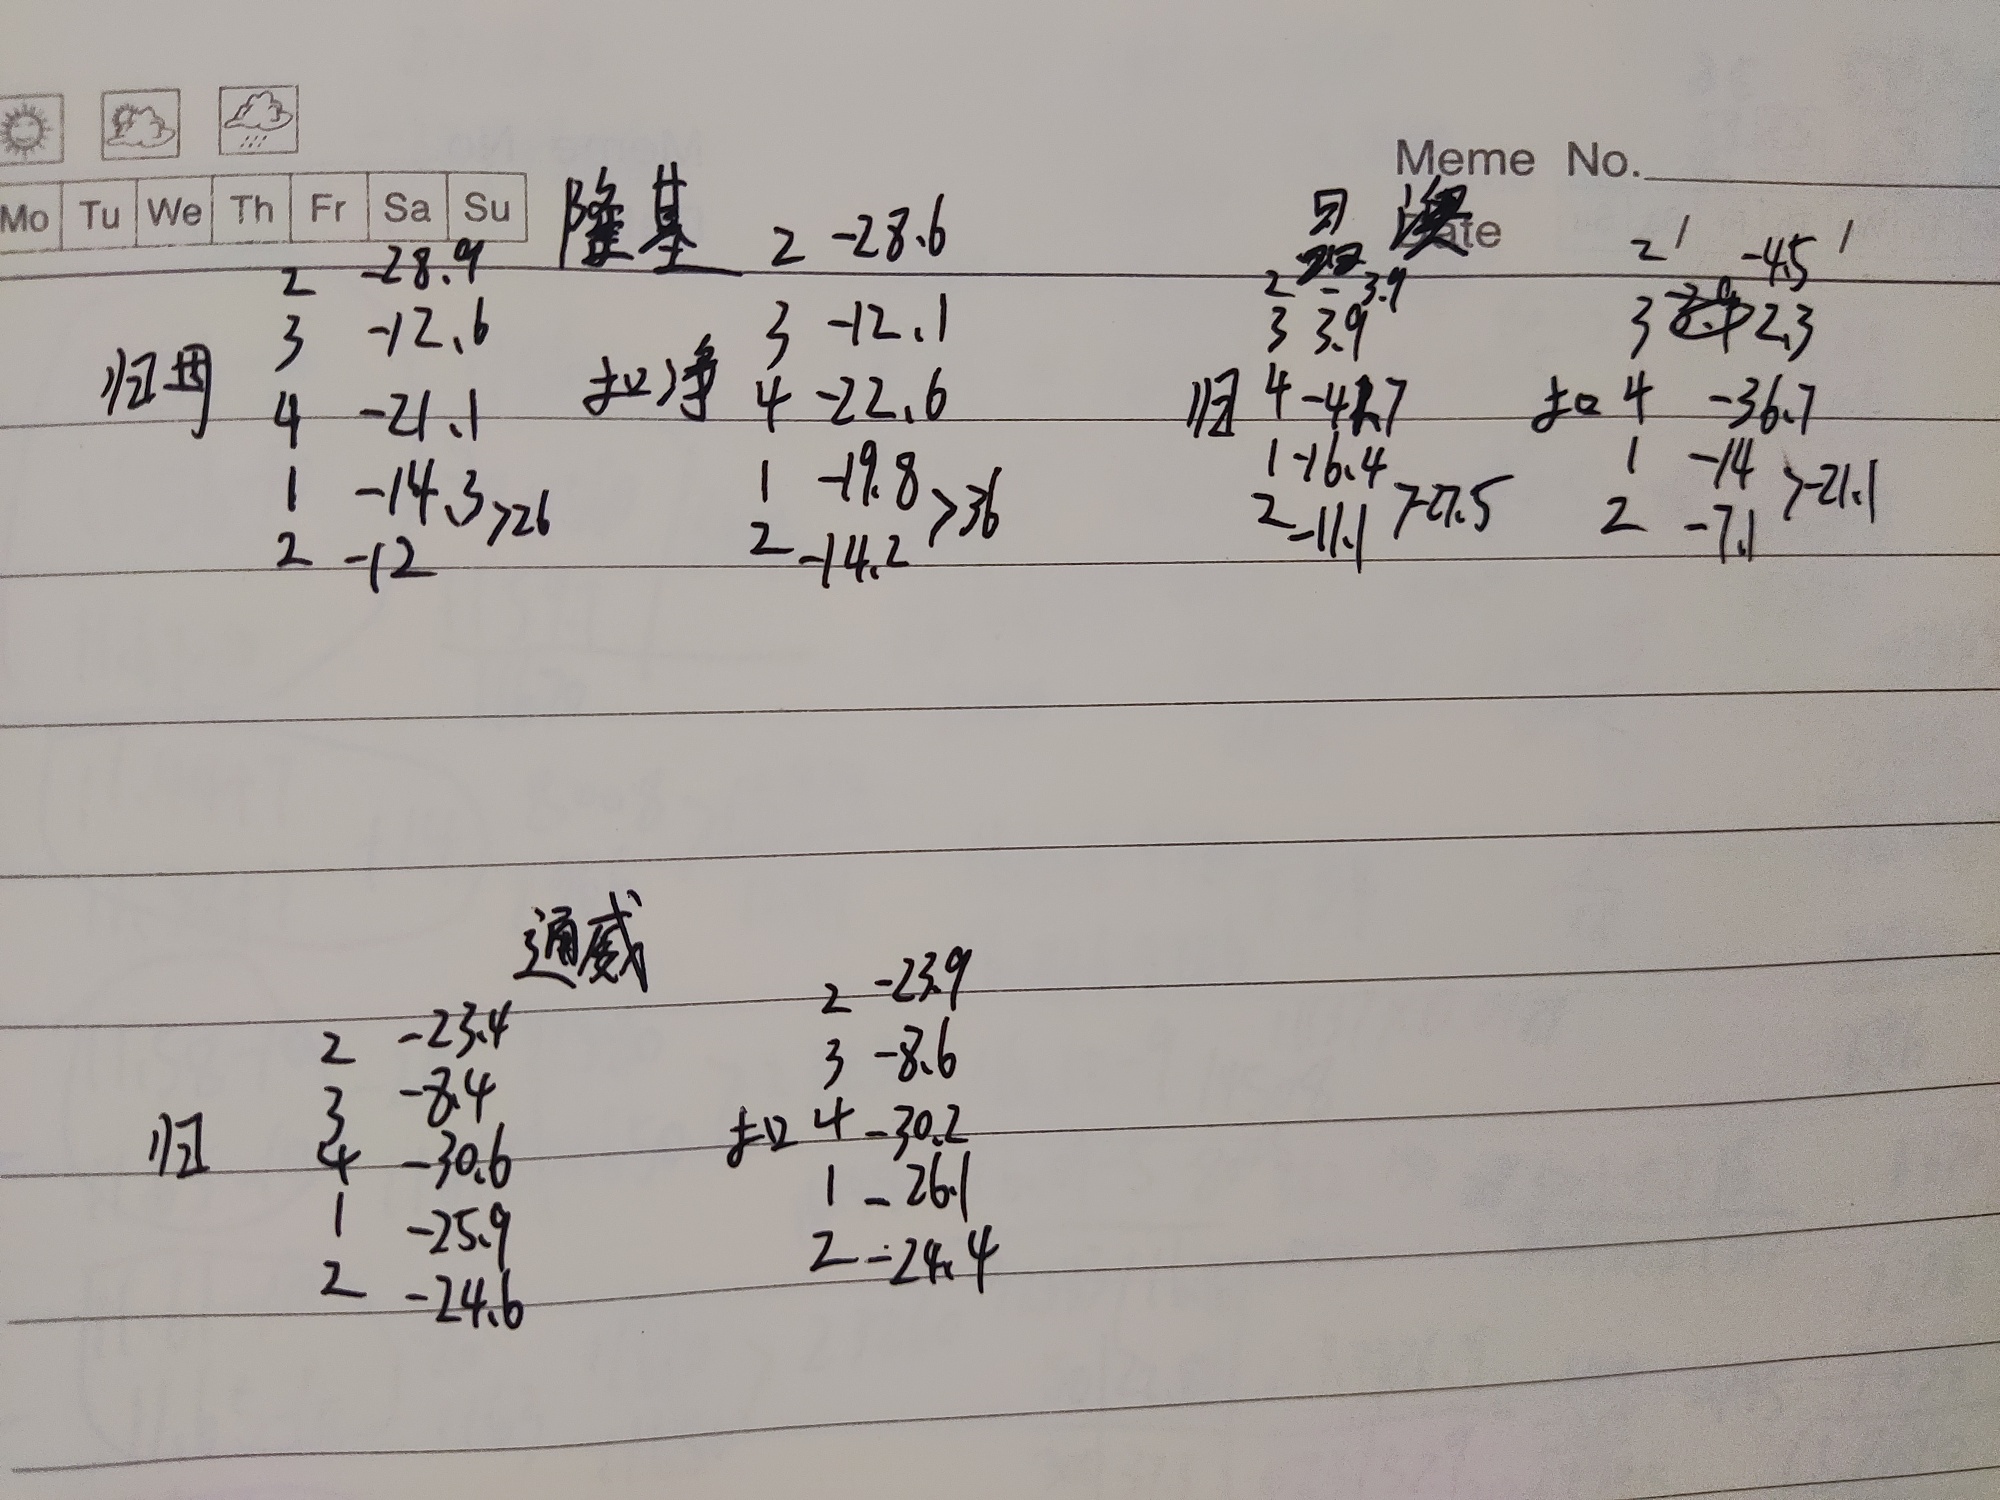 Meme No.
Mo Tu We Th Fr Sa Su
Date
隆基
归母
2 -28.9
3 -12.6
4 -21.1
1 -14.3
2 -12
>26
扣净
2 -28.6
3 -12.1
4 -22.6
1 -19.8
2 -14.2
>36
晶澳
归
2 -3.9
3 3.9
4 -41.7
1 -16.4
2 -11.1
>-27.5
扣
2 -4.5
3 2.3
4 -36.7
1 -14
2 -7.1
>-21.1
通威
归
2 -23.4
3 -8.4
4 -30.6
1 -25.9
2 -24.6
扣
2 -23.9
3 -8.6
4 -30.2
1 -26.1
2 -24.4